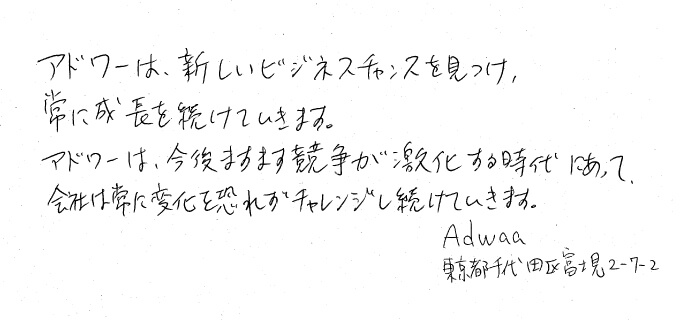 アドワーは、新しいビジネスチャンスを見つけ,
常に成長を続けていきます。
アドワーは、今後ますます競争が激化する時代にあって、
会社は常に変化を恐れずチャレンジし続けていきます。
Adwaa
東京都千代田区富士見2-7-2